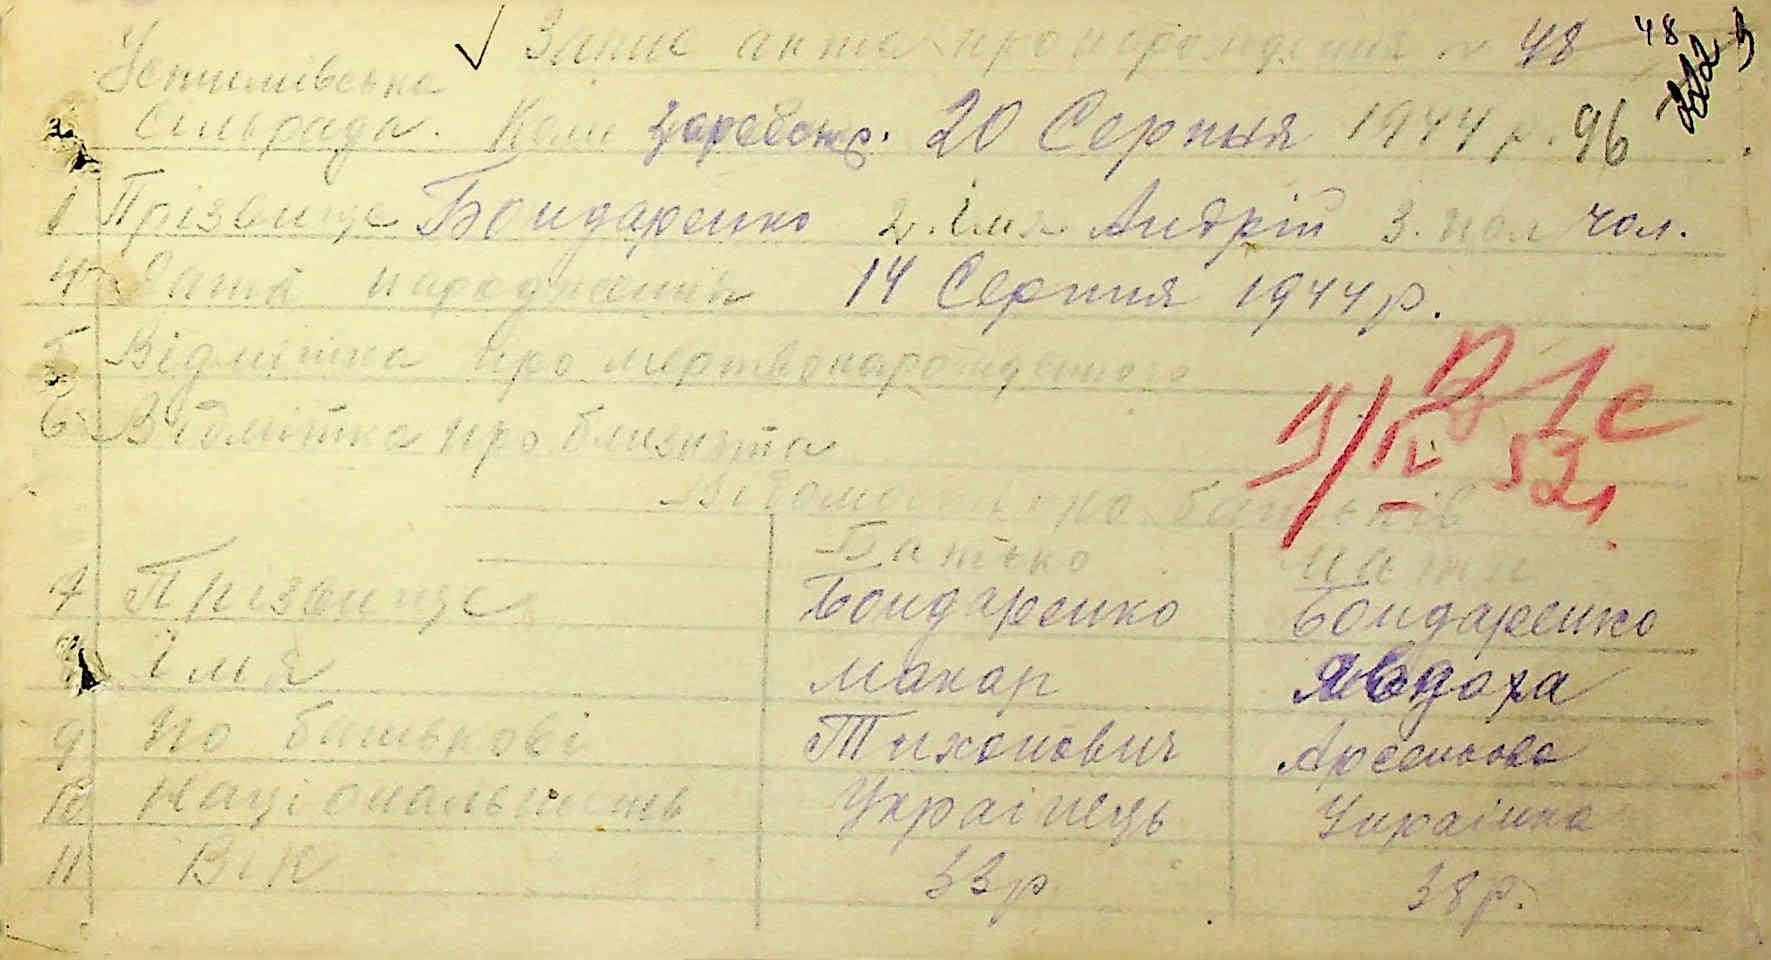 Запис акта про народження № 48 48
Устимівська
Сільрада. Коли зареєстр. 20 Серпня 1944 р. 96
1 Прізвище Бондаренко 2. Імя Андрій 3. пол чол.
4 Дата народження 14 Серпня 1944 р.
5 Відмітка про мертвонарожденного
6 Відмітка про близнята
19/IV 52
Відомості про батьків
Батько Мати
7 Прізвище Бондаренко Бондаренко
8 Імя Макар Явдоха
9 По батькові Тихонович Арсеньовна
10 Національність Українець Українка
11 Вік 33 р 38 р.